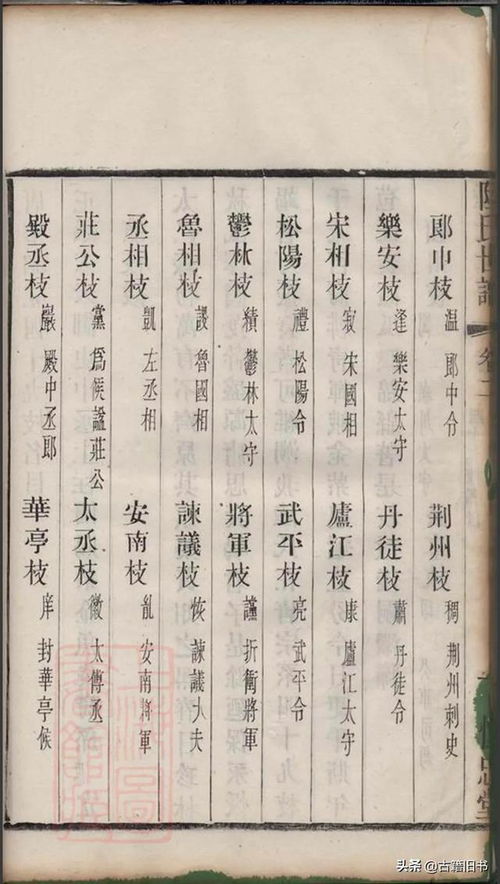 郎中枝 温 郎中令 荆州枝 稠 荆州刺史
樂安枝 逢 樂安太守 丹徒枝 肅 丹徒令
宋相枝 寂 宋國相 廬江枝 康 廬江太守
松陽枝 禮 松陽令 武平枝 亮 武平令
鬱林枝 績 鬱林太守 將軍枝 謐 折衝將軍
魯相枝 謖 魯國相 諫議枝 恢 諫議大夫
丞相枝 凱 左丞相 安南枝 胤 安南將軍
莊公枝 黨 為候謚莊公 太丞枝 徽 太傅丞
殿丞枝 巖 殿中丞郎 華亭枝 庠 封華亭候
陸氏世譜 卷二
思堂
头条 @古籍旧书